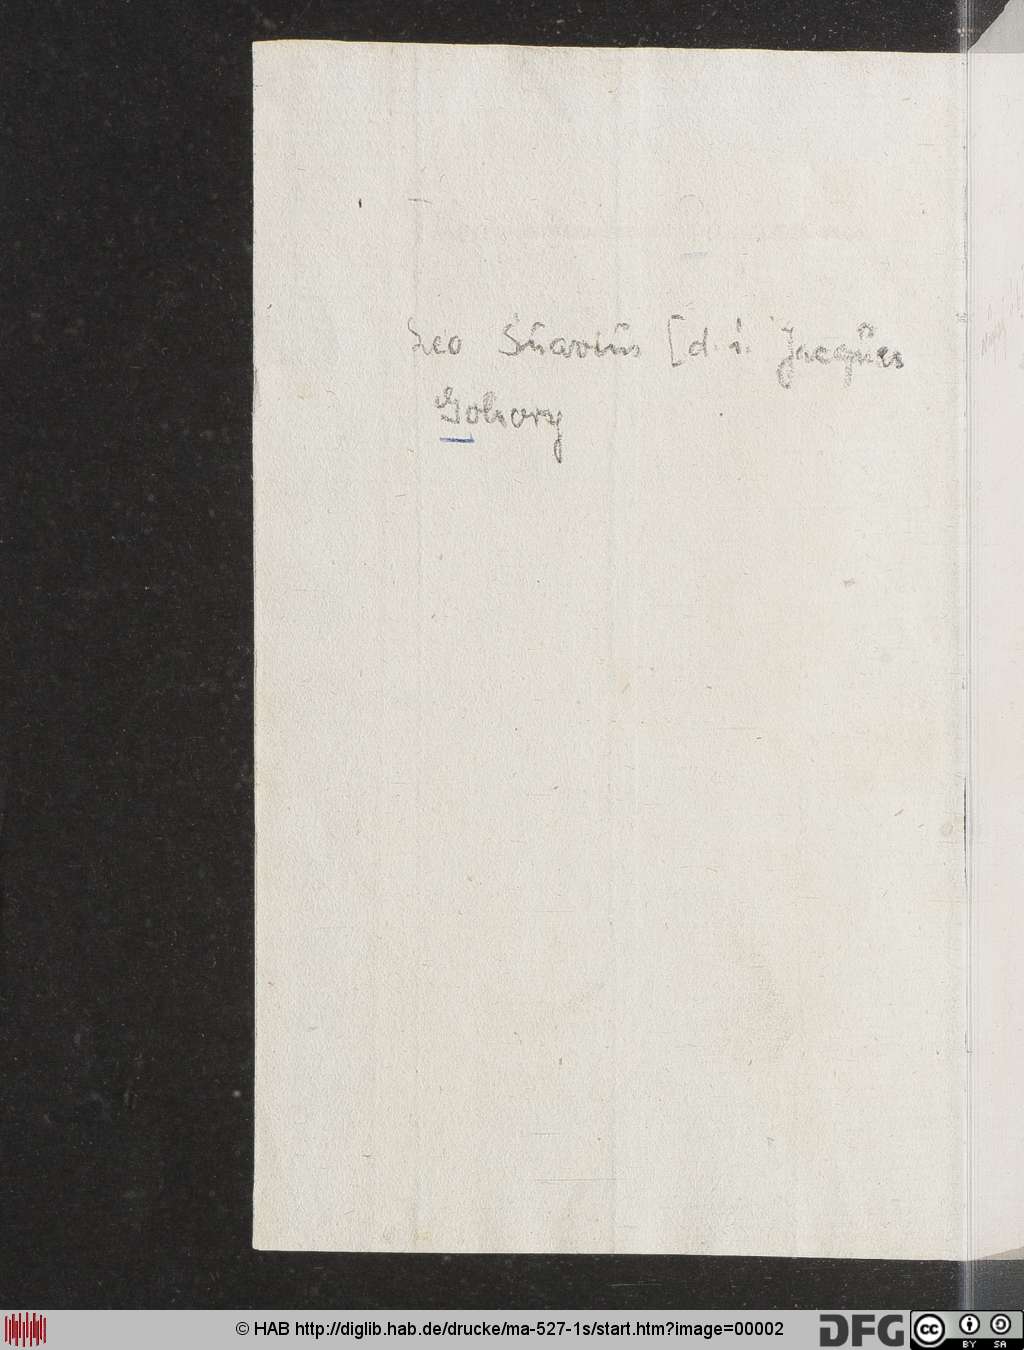 Leo Suavius [d. i. Jacques
Gohory
© HAB http://diglib.hab.de/drucke/ma-527-1s/start.htm?image=00002
DFG
cc
BY SA